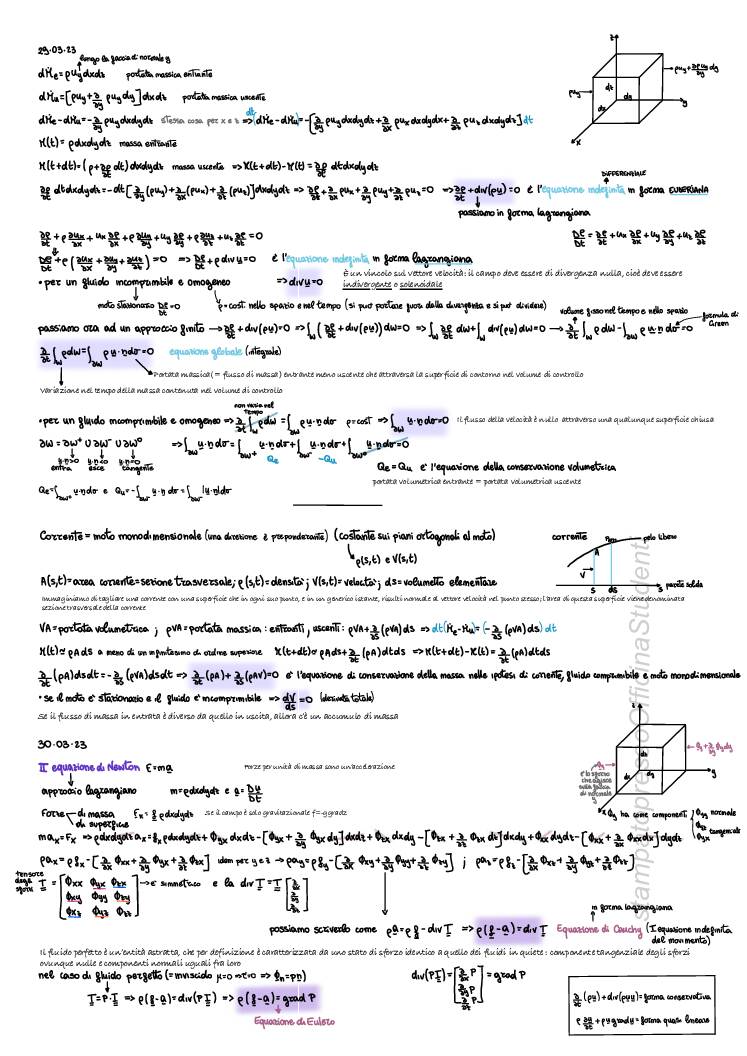 29.03.23
lungo la faccia di normale y
dṀe = ρuy dxdz portata massica entrante
dṀu = [ρuy + ∂/∂y ρuy dy] dxdz portata massica uscente
dṀe - dṀu = -∂/∂y ρuy dxdydz stessa cosa per x e z => dt(dṀe - dṀu) = -[∂/∂y ρuy dxdydz + ∂/∂x ρux dxdydz + ∂/∂z ρuz dxdydz] dt
M(t) = ρdxdydz massa entrante
M(t+dt) = (ρ + ∂ρ/∂t dt) dxdydz massa uscente => M(t+dt) - M(t) = ∂ρ/∂t dtdxdydz
∂ρ/∂t dtdxdydz = -dt[∂/∂y (ρuy) + ∂/∂x (ρux) + ∂/∂z (ρuz)] dxdydz => ∂ρ/∂t + ∂/∂x ρux + ∂/∂y ρuy + ∂/∂z ρuz = 0 => ∂ρ/∂t + div(ρu) = 0 è l'equazione indefinita in forma EULERIANA
DIFFERENZIALE
passiamo in forma lagrangiana
∂ρ/∂t + ρ ∂ux/∂x + ux ∂ρ/∂x + ρ ∂uy/∂y + uy ∂ρ/∂y + ρ ∂uz/∂z + uz ∂ρ/∂z = 0
Dρ/Dt = ∂ρ/∂t + ux ∂ρ/∂x + uy ∂ρ/∂y + uz ∂ρ/∂z
Dρ/Dt + ρ(∂ux/∂x + ∂uy/∂y + ∂uz/∂z) = 0 => Dρ/Dt + ρ div u = 0 è l'equazione indefinita in forma lagrangiana
• per un fluido incomprimibile e omogeneo => div u = 0
È un vincolo sul vettore velocità: il campo deve essere di divergenza nulla, cioè deve essere
indivergente o solenoidale
moto stazionario Dρ/Dt = 0
ρ = cost. nello spazio e nel tempo (si può portare fuori dalla divergenza e si può dividere)
volume fisso nel tempo e nello spazio
formula di Green
passiamo ora ad un approccio finito → ∂ρ/∂t + div(ρu) = 0 => ∫w (∂ρ/∂t + div(ρu)) dw = 0 => ∫w ∂ρ/∂t dw + ∫w div(ρu) dw = 0 → ∂/∂t ∫w ρ dw - ∫∂w ρ u·n dσ = 0
∂/∂t ∫w ρdw = ∫∂w ρ u·n dσ = 0 equazione globale (integrale)
Portata massica (= flusso di massa) entrante meno uscente che attraversa la superficie di contorno nel volume di controllo
Variazione nel tempo della massa contenuta nel volume di controllo
non varia nel tempo
• per un fluido incomprimibile e omogeneo => ∂/∂t ∫w ρdw = ∫∂w ρu·n dσ ρ = cost => ∫∂w u·n dσ = 0 Il flusso della velocità è nullo attraverso una qualunque superficie chiusa
∂w = ∂w⁺ ∪ ∂w⁻ ∪ ∂w⁰ => ∫∂w u·n dσ = ∫∂w⁺ u·n dσ + ∫∂w⁻ u·n dσ + ∫∂w⁰ u·n dσ = 0
u·n>0 u·n<0 u·n=0
entra esce tangente
Qe -Qu
Qe = Qu è l'equazione della conservazione volumetrica
portata volumetrica entrante = portata volumetrica uscente
Qe = ∫∂w⁺ u·n dσ e Qu = -∫∂w⁻ u·n dσ = ∫∂w⁻ |u·n| dσ
Corrente = moto monodimensionale (una direzione è preponderante) (costante sui piani ortogonali al moto)
ρ(s,t) e V(s,t)
corrente
pelo libero
parete solida
A(s,t) = area corrente = sezione trasversale; ρ(s,t) = densità; V(s,t) = velocità; ds = volumetto elementare
Immaginiamo di tagliare una corrente con una superficie che in ogni suo punto, e in un generico istante, risulti normale al vettore velocità nel punto stesso; l'area di questa superficie viene denominata
sezione trasversale della corrente
VA = portata volumetrica ; ρVA = portata massica : entranti, uscenti: ρVA + ∂/∂s (ρVA) ds => dt(Ṁe - Ṁu) = (-∂/∂s (ρVA) ds) dt
M(t) ≈ ρAds a meno di un infinitesimo di ordine superiore M(t+dt) ≈ ρAds + ∂/∂t (ρA) dtds => M(t+dt) - M(t) = ∂/∂t (ρA) dtds
∂/∂t (ρA) dsdt = -∂/∂s (ρVA) dsdt => ∂/∂t (ρA) + ∂/∂s (ρAV) = 0 è l'equazione di conservazione della massa nelle ipotesi di corrente, fluido comprimibile e moto monodimensionale
• se il moto è stazionario e il fluido è incomprimibile => dV/ds = 0 (derivata totale)
Se il flusso di massa in entrata è diverso da quello in uscita, allora c'è un accumulo di massa
30.03.23
II equazione di Newton F = ma Forze per unità di massa sono un'accelerazione
approccio lagrangiano m = ρdxdydz e a = Du/Dt
Forze di massa Fx = fx ρdxdydz Se il campo è solo gravitazionale f=-g gradz
di superficie
è lo sforzo che agisce sulla faccia di normale y
Φy ha come componenti Φyy normale
Φyx
Φyz tangenziale
max = Fx => ρdxdydz ax = fx ρdxdydz + Φyx dxdz - [Φyx + ∂/∂y Φyx dy] dxdz + Φzx dxdy - [Φzx + ∂/∂z Φzx dz] dxdy + Φxx dydz - [Φxx + ∂/∂x Φxx dx] dydz
ρax = ρfx - [∂/∂x Φxx + ∂/∂y Φyx + ∂/∂z Φzx] idem per y e z => ρay = ρfy - [∂/∂x Φxy + ∂/∂y Φyy + ∂/∂z Φzy] ; ρaz = ρfz - [∂/∂x Φxz + ∂/∂y Φyz + ∂/∂z Φzz]
tensore degli sforzi T = [Φxx Φyx Φzx
Φxy Φyy Φzy
Φxz Φyz Φzz] → è simmetrico e la div T = T [∂/∂x ∂/∂y ∂/∂z]
in forma lagrangiana
possiamo scriverlo come ρa = ρf - div T => ρ(f-a) = div T Equazione di Cauchy (I equazione indefinita
del movimento)
Il fluido perfetto è un'entità astratta, che per definizione è caratterizzata da uno stato di sforzo identico a quello dei fluidi in quiete: componente tangenziale degli sforzi
ovunque nulle e componenti normali uguali fra loro
nel caso di fluido perfetto (= inviscido μ=0 => τ=0 => Φn = pn)
div(PI) = [∂/∂x P ∂/∂y P ∂/∂z P] = grad P
T = P·I => ρ(f-a) = div(PI) => ρ(f-a) = grad P
Equazione di Eulero
∂/∂t (ρu) + div(ρuu) = forma conservativa
ρ ∂u/∂t + ρu grad u = forma quasi lineare
stampatopressoOfficinaStudenti